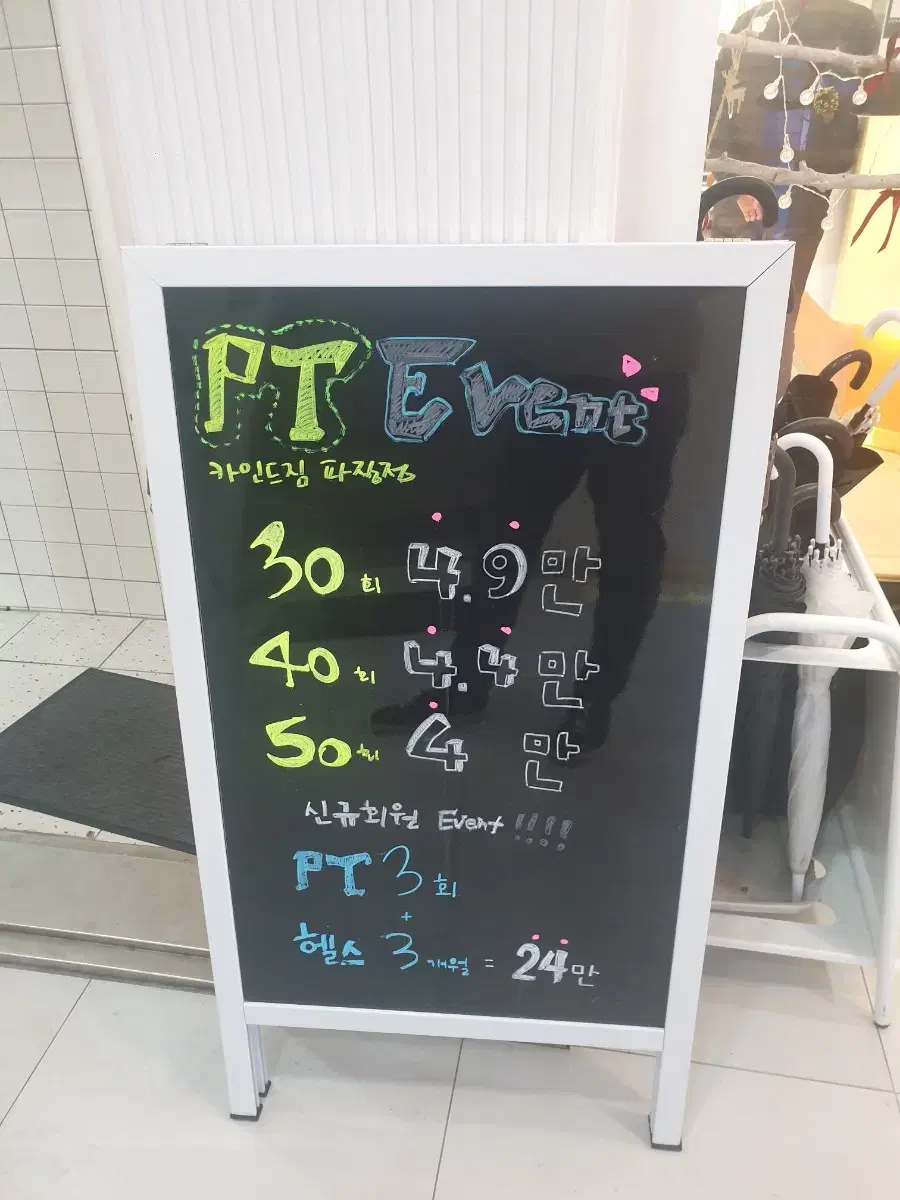 PT Event
카인드짐 파장점
30회 4.9만
40회 4.4만
50회 4만
신규회원 Event !!!!
PT 3회
+
헬스 3개월 = 24만